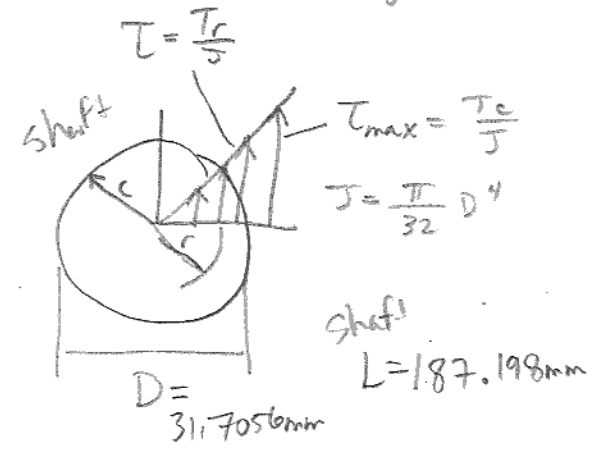 τ = Tr/J
shaft
τmax = Tc/J
c
J = π/32 D⁴
r
shaft
L=187.198mm
D =
31.7056mm